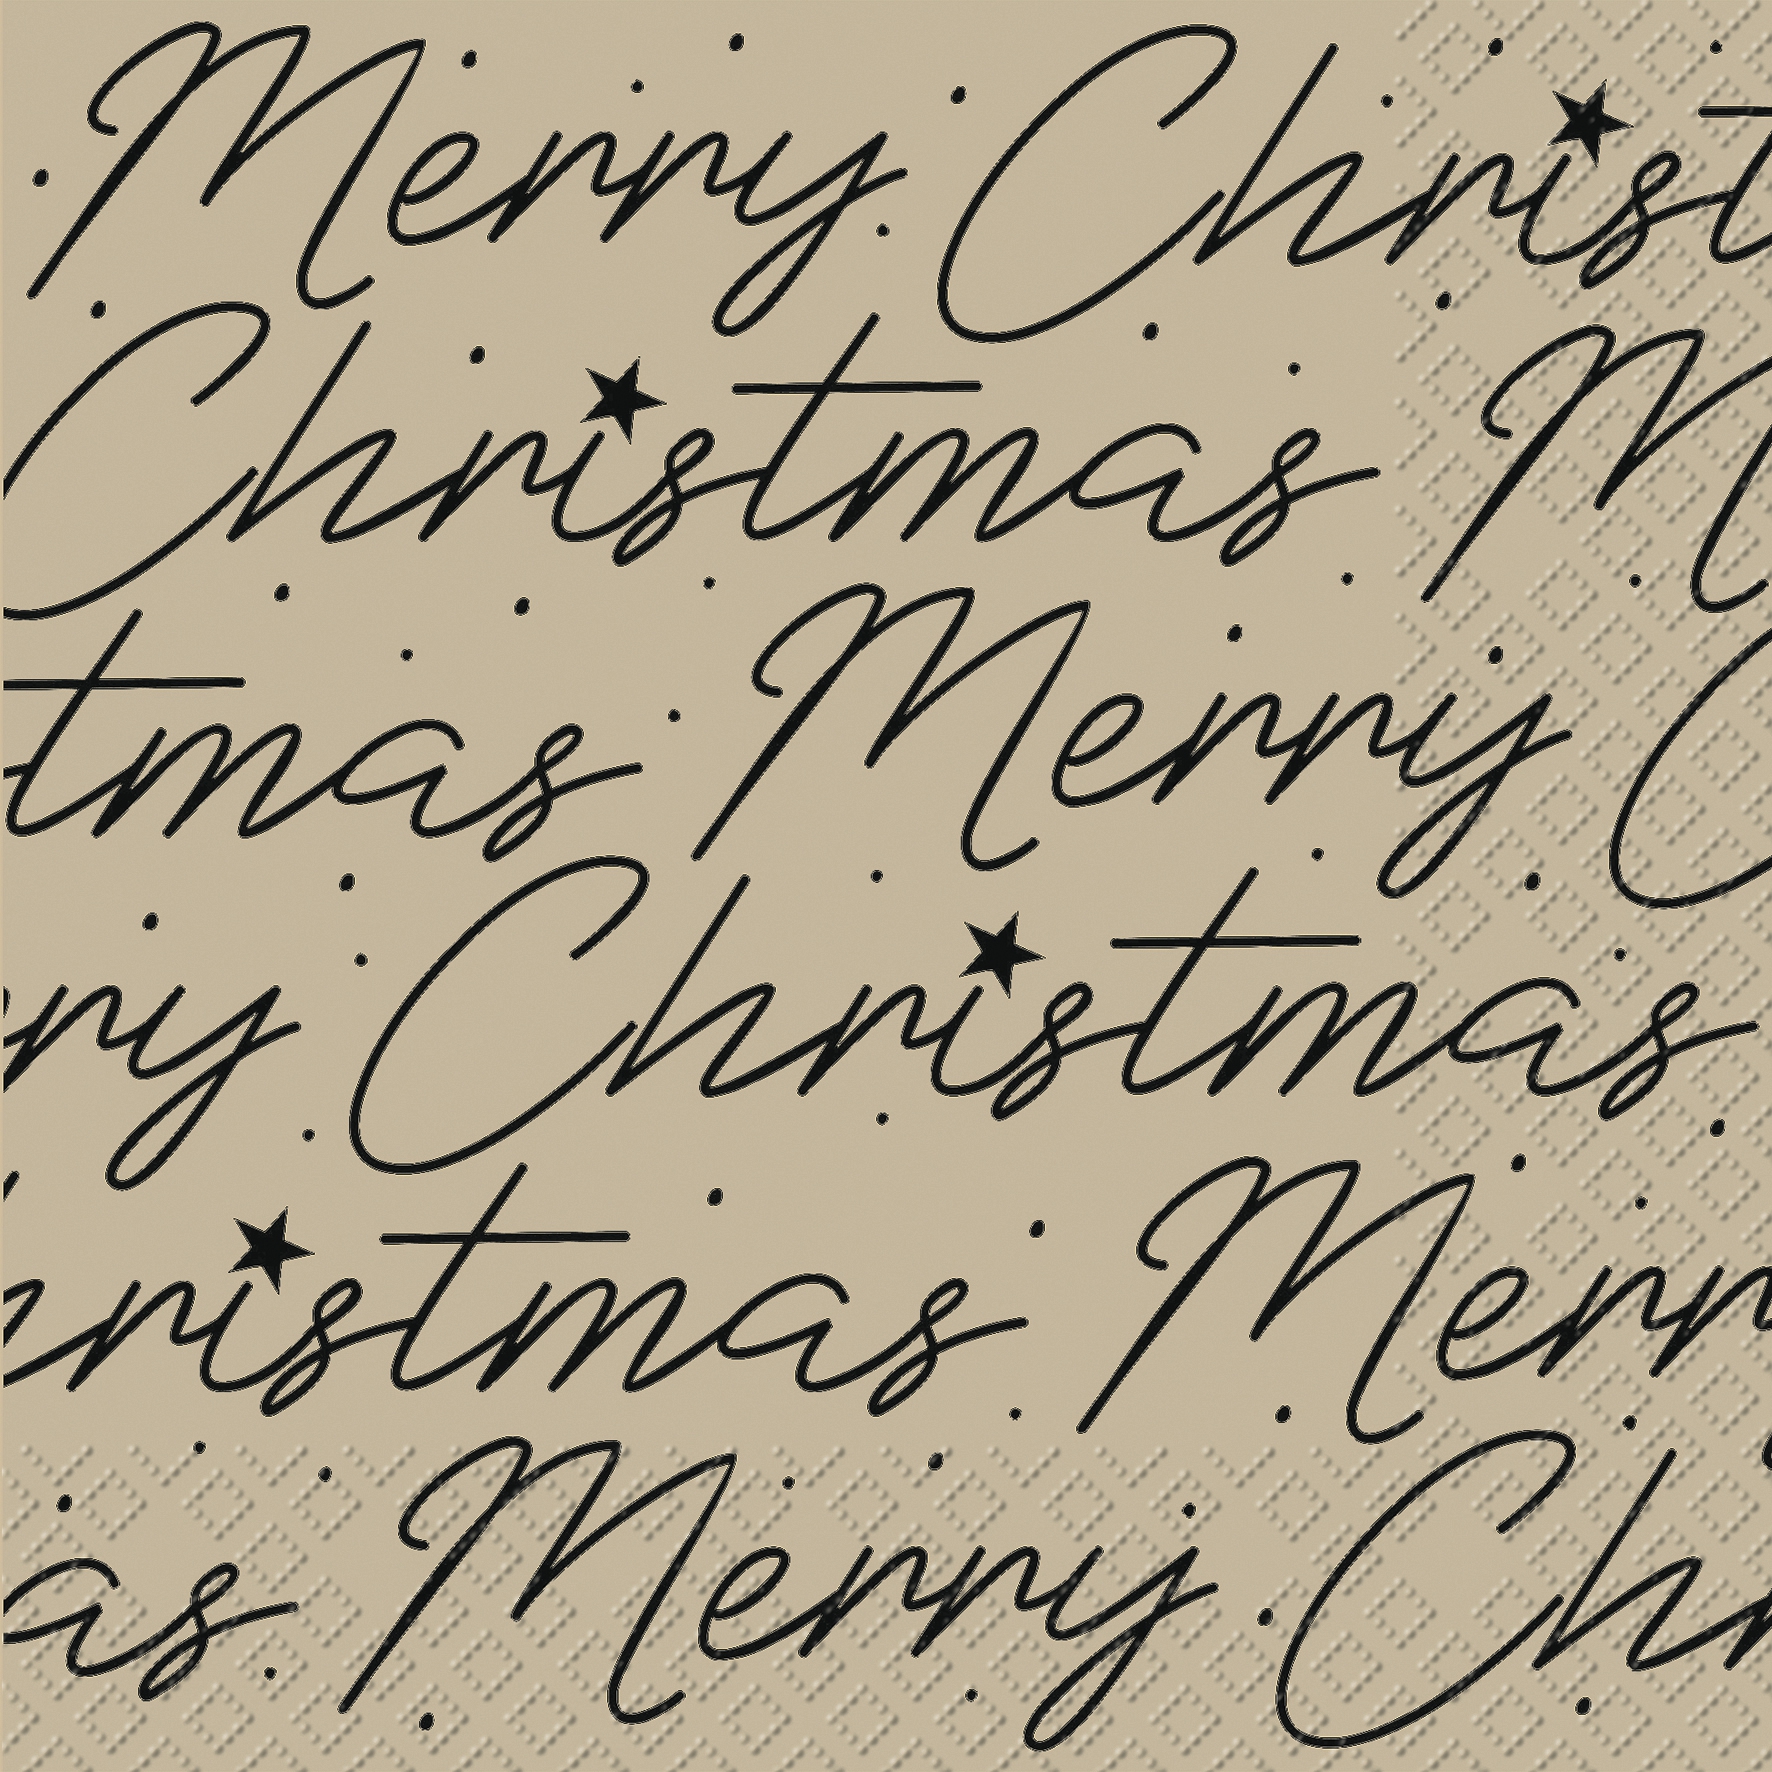 Merry Christ
Christmas M
tmas Merry C
ry Christmas
ristmas Merr
as Merry Chr